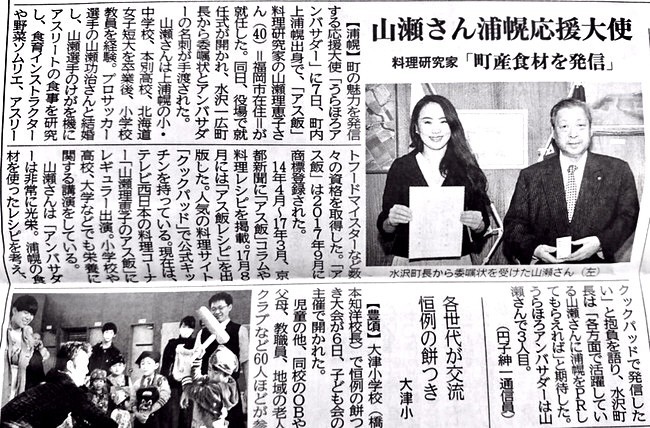 山瀬さん浦幌応援大使
料理研究家「町産食材を発信」
【浦幌】町の魅力を発信
する応援大使「うらほろア
ンバサダー」に7日、町内
上浦幌出身で、「アス飯」
料理研究家の山瀬理恵子さ
ん(40)=福岡市在住=が
就任した。同日、役場で就
任式が開かれ、水沢一広町
長から委嘱状とアンバサダ
ーの名刺が手渡された。
山瀬さんは上浦幌の小・
中学校、本別高校、北海道
女子短大を卒業後、小学校
教員を経験。プロサッカー
選手の山瀬功治さんと結婚
し、山瀬選手のけがを機に
アスリートの食事を研究
し、食育インストラクター
や野菜ソムリエ、アスリー
トフードマイスターなど数
々の資格を取得した。「ア
ス飯」は2017年9月に
商標登録された。
14年4月〜17年3月、京
都新聞に「アス飯」コラムや
料理レシピを掲載。17月8
月には「アス飯レシピ」を出
版した。人気の料理サイト
「クックパッド」で公式キッ
チンを持っている。現在は、
テレビ西日本の料理コーナ
ー「山瀬理恵子のアス飯」に
レギュラー出演。小学校や
高校、大学などでも栄養に
関する講演をしている。
山瀬さんは「アンバサダ
ーは非常に光栄。浦幌の食
材を使ったレシピを考え、
クックパッドで発信した
い」と抱負を語り、水沢町
長は「各方面で活躍してい
る山瀬さんに浦幌をPRし
てもらえれば」と期待した。
うらほろアンバサダーは山
瀬さんで3人目。
(円子紳一通信員)
水沢町長から委嘱状を受けた山瀬さん(左)
各世代が交流
恒例の餅つき
大津小
【豊頃】大津小学校(橋
本知洋校長)で恒例の餅つ
き大会が6日、子ども会の
主催で開かれた。
児童の他、同校のOBや
父母、教職員、地域の老人
クラブなど60人ほどが参